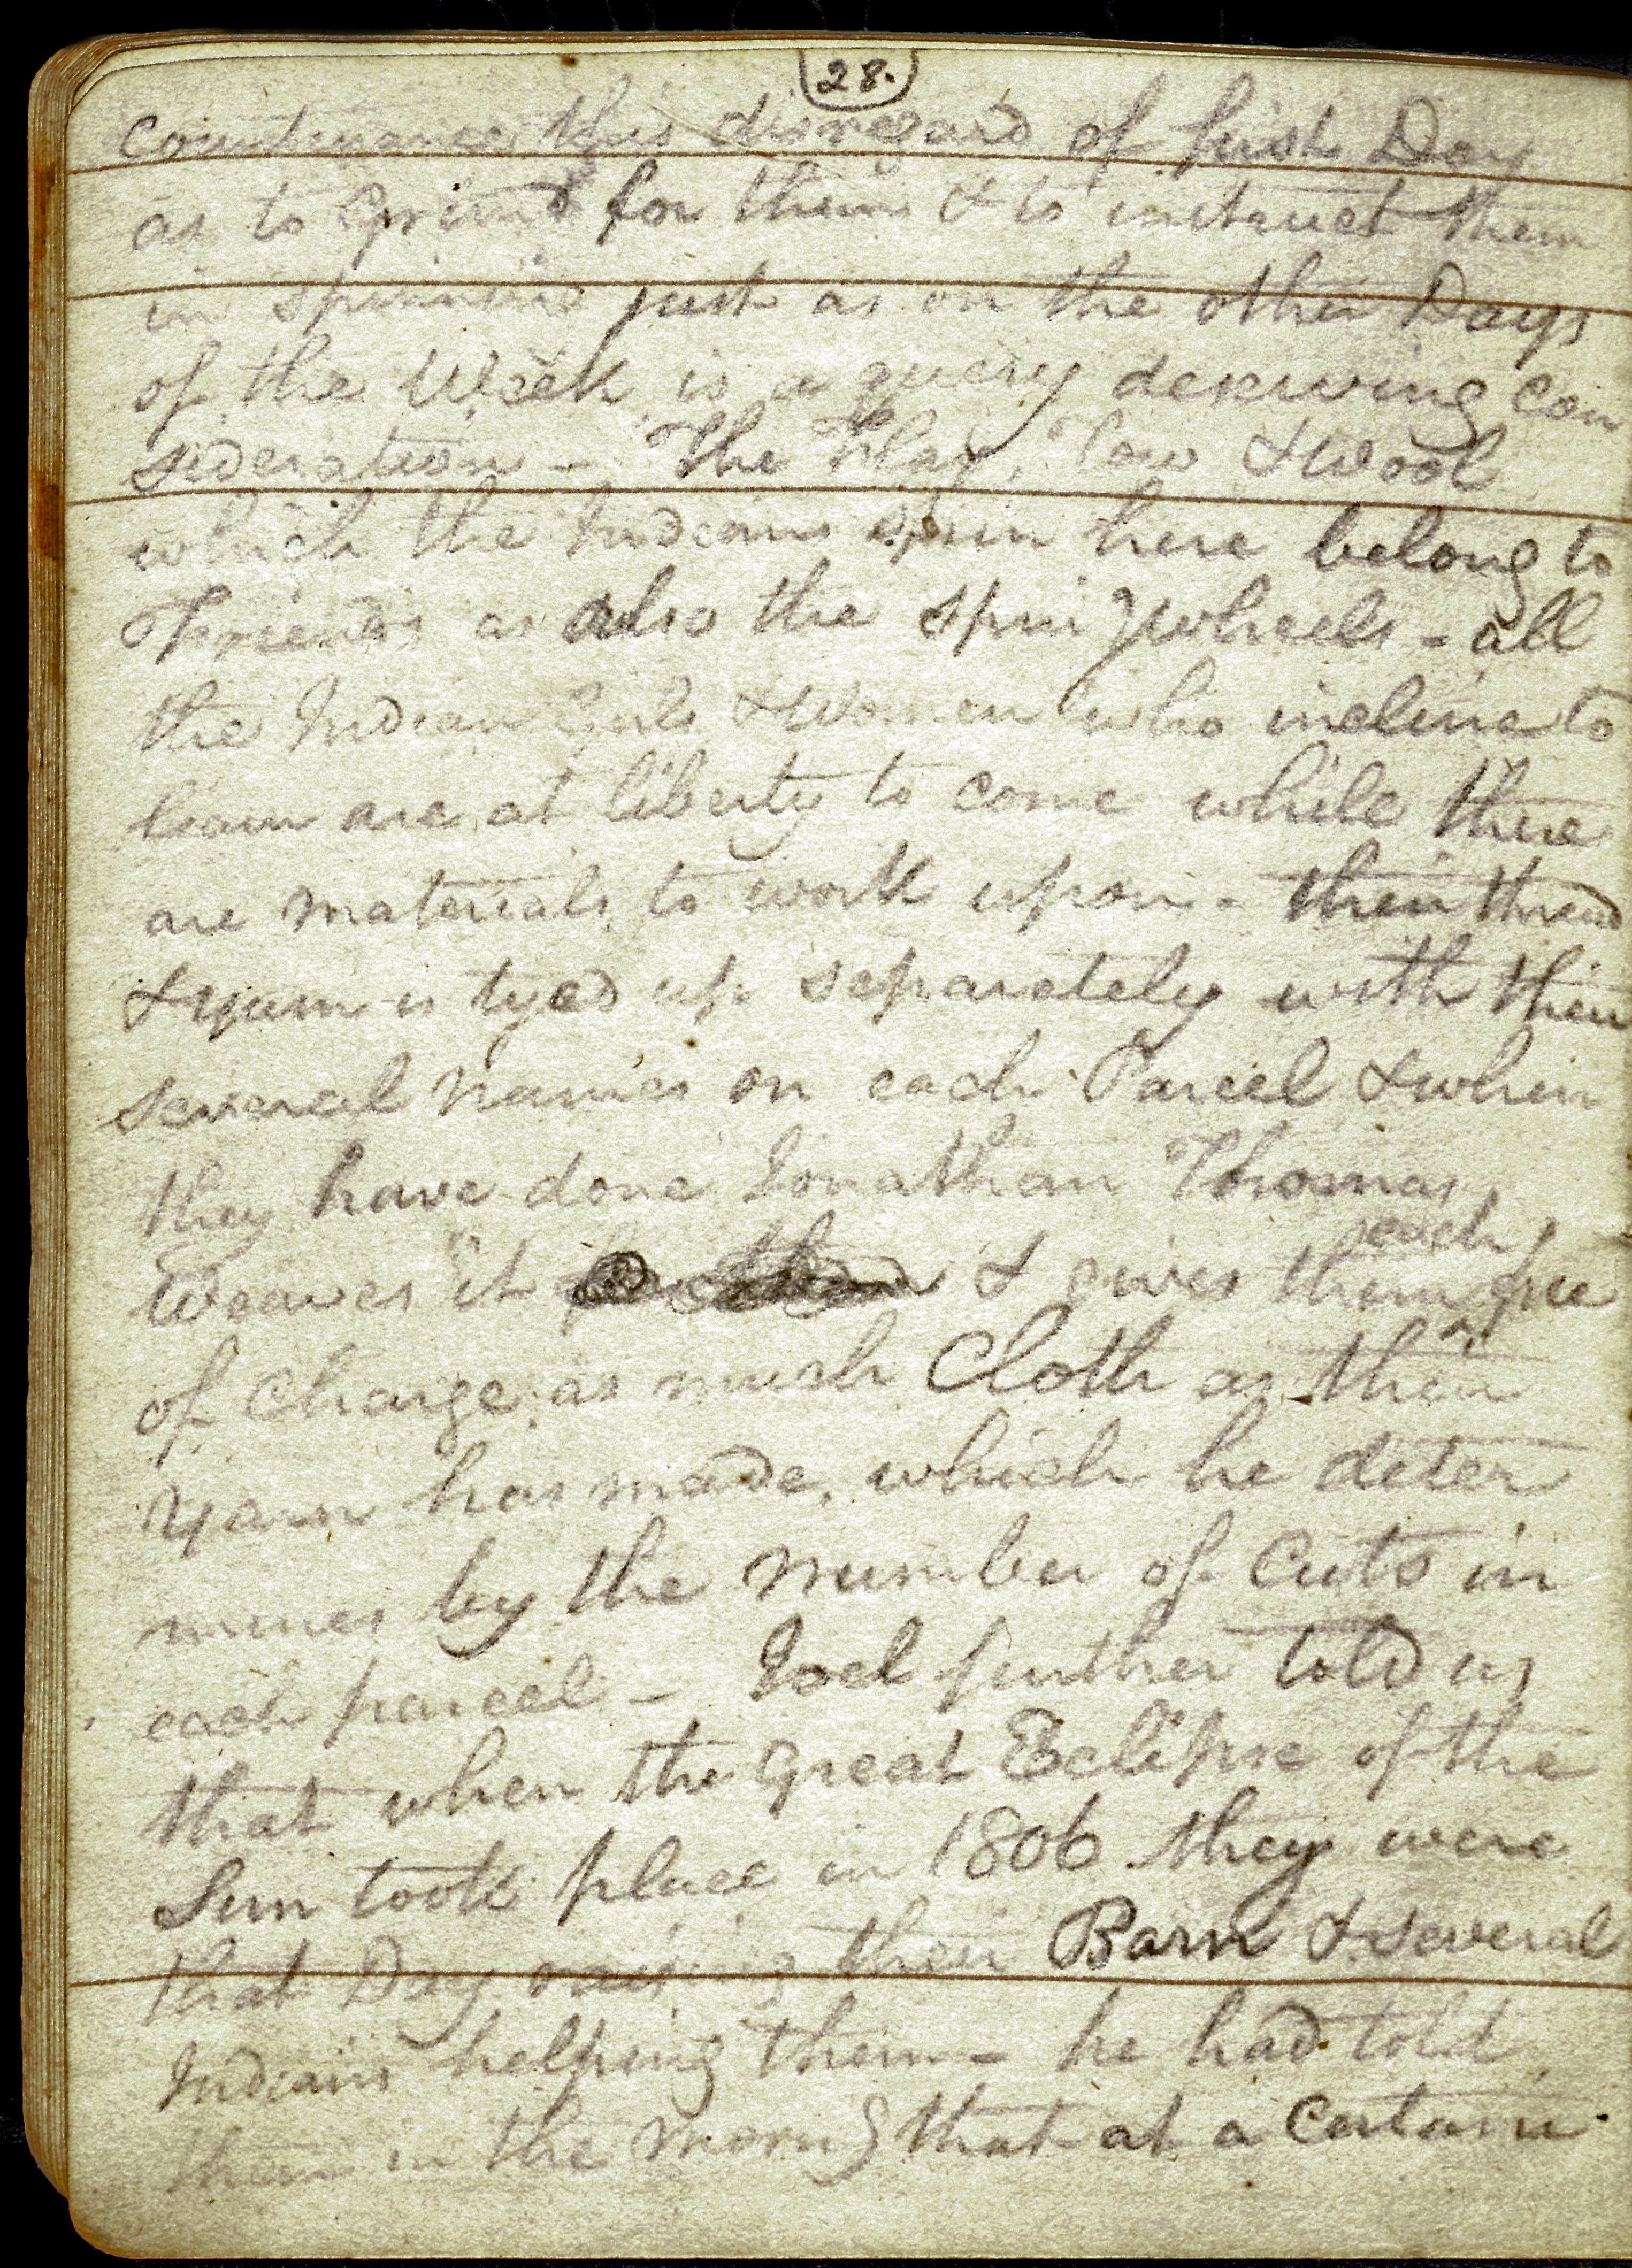 28.
countenance this disregard of first Day
as to Grind for them & to instruct them
in spinning just as on the other Days
of the Week is a query deserving con
sideration - The Flax, Tow & Wool
which the Indians spin here belong to
Friends as also the spin'g wheels - all
the Indian Girls & Women who incline to
learn are at liberty to come while there
are materials to work upon - their thread
& yarn is tyed up separately with their
several names on each Parcel & when
they have done Jonathan Thomas
Weaves it & gives them each free
of Charge as much Cloth as their
Yarn has made, which he deter
mines by the number of Cuts in
each parcel - Joel further told us
that when the great Eclipse of the
Sun took place in 1806 they were
that Day raising their Barn & several
Indians helping them - he had told
them in the morng that at a Certain